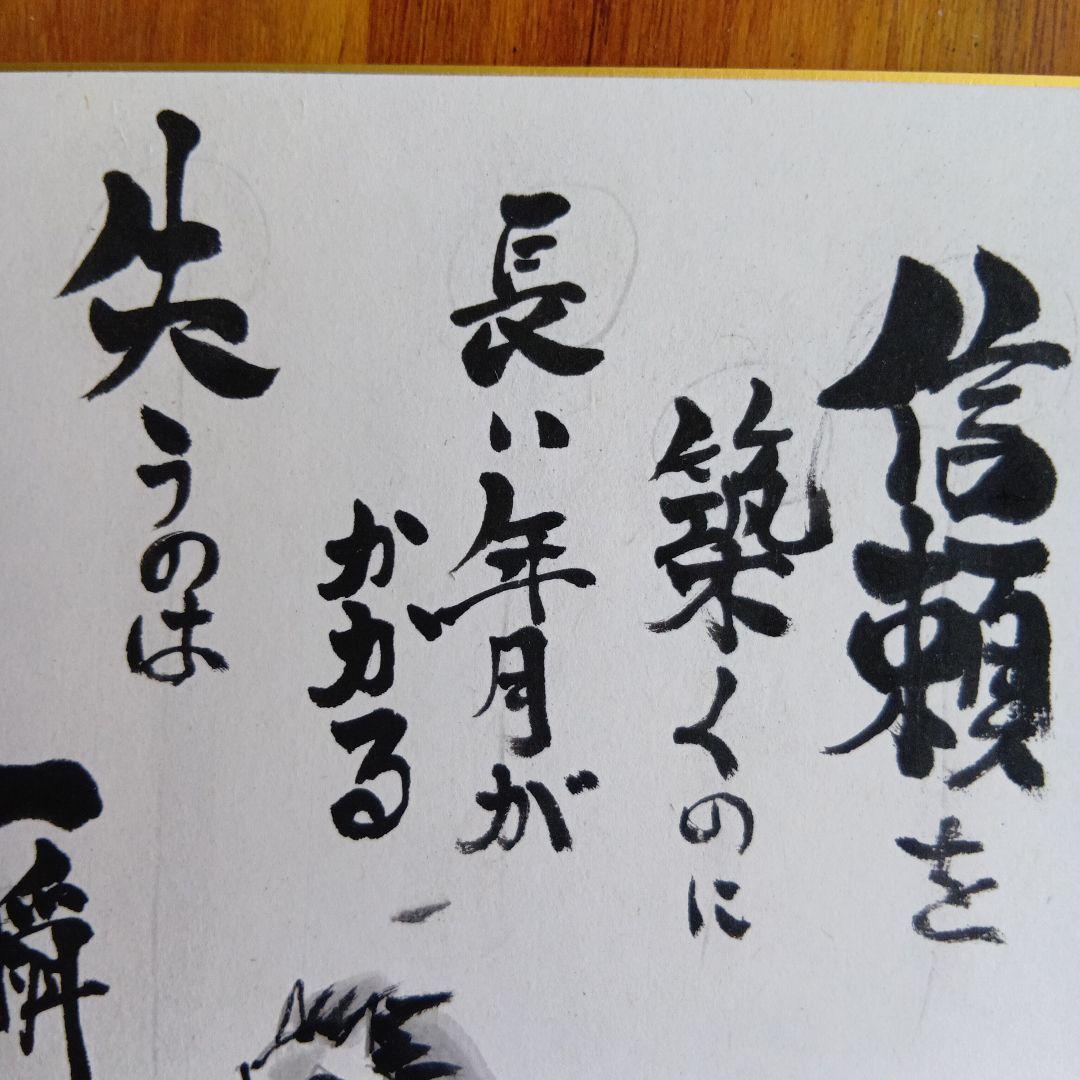 信頼を
築くのに
長い年月が
かかる
失うのは
一瞬